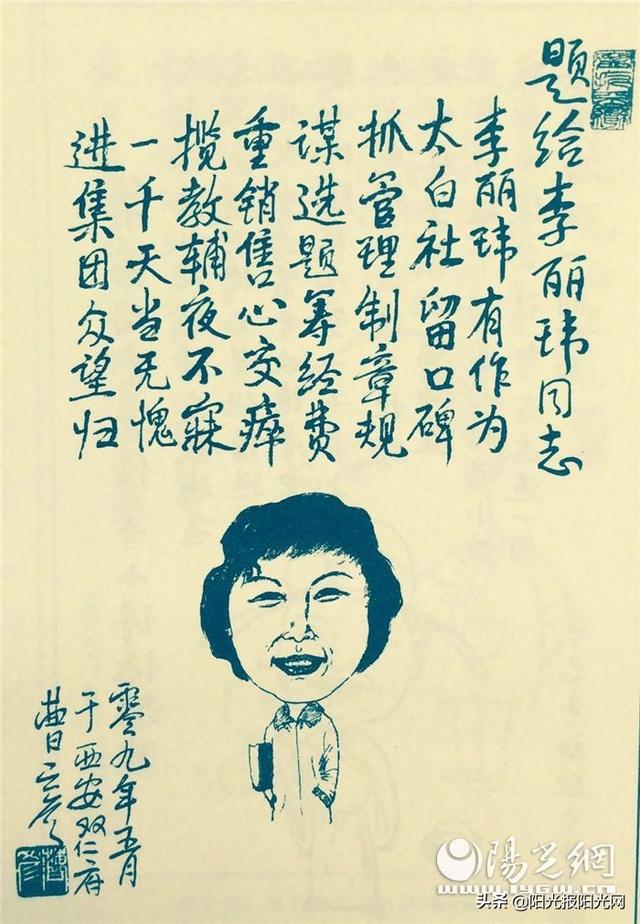 题给李丽玮同志
李丽玮有作为
太白社留口碑
抓管理制章规
谋选题筹经费
重销售心交瘁
揽教辅夜不寐
一千天当无愧
进集团众望归
零九年五月
于西安双仁府
曹彦
陽光網
www.iygw.cn
头条@阳光报阳光网